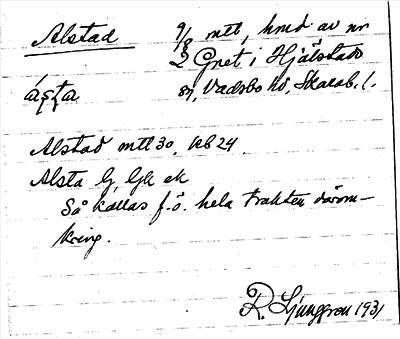 Alstad 9/8 mtl, hmd av nr
2 Gnet i Hjälstads
ásta sn, Vadsbo hd, Skarab. l.
Alstad mtl 30, AB 24
Alsta G, Gk ek
Så kallas f.ö. hela trakten därom-
kring.
R. Ljunggren 1931